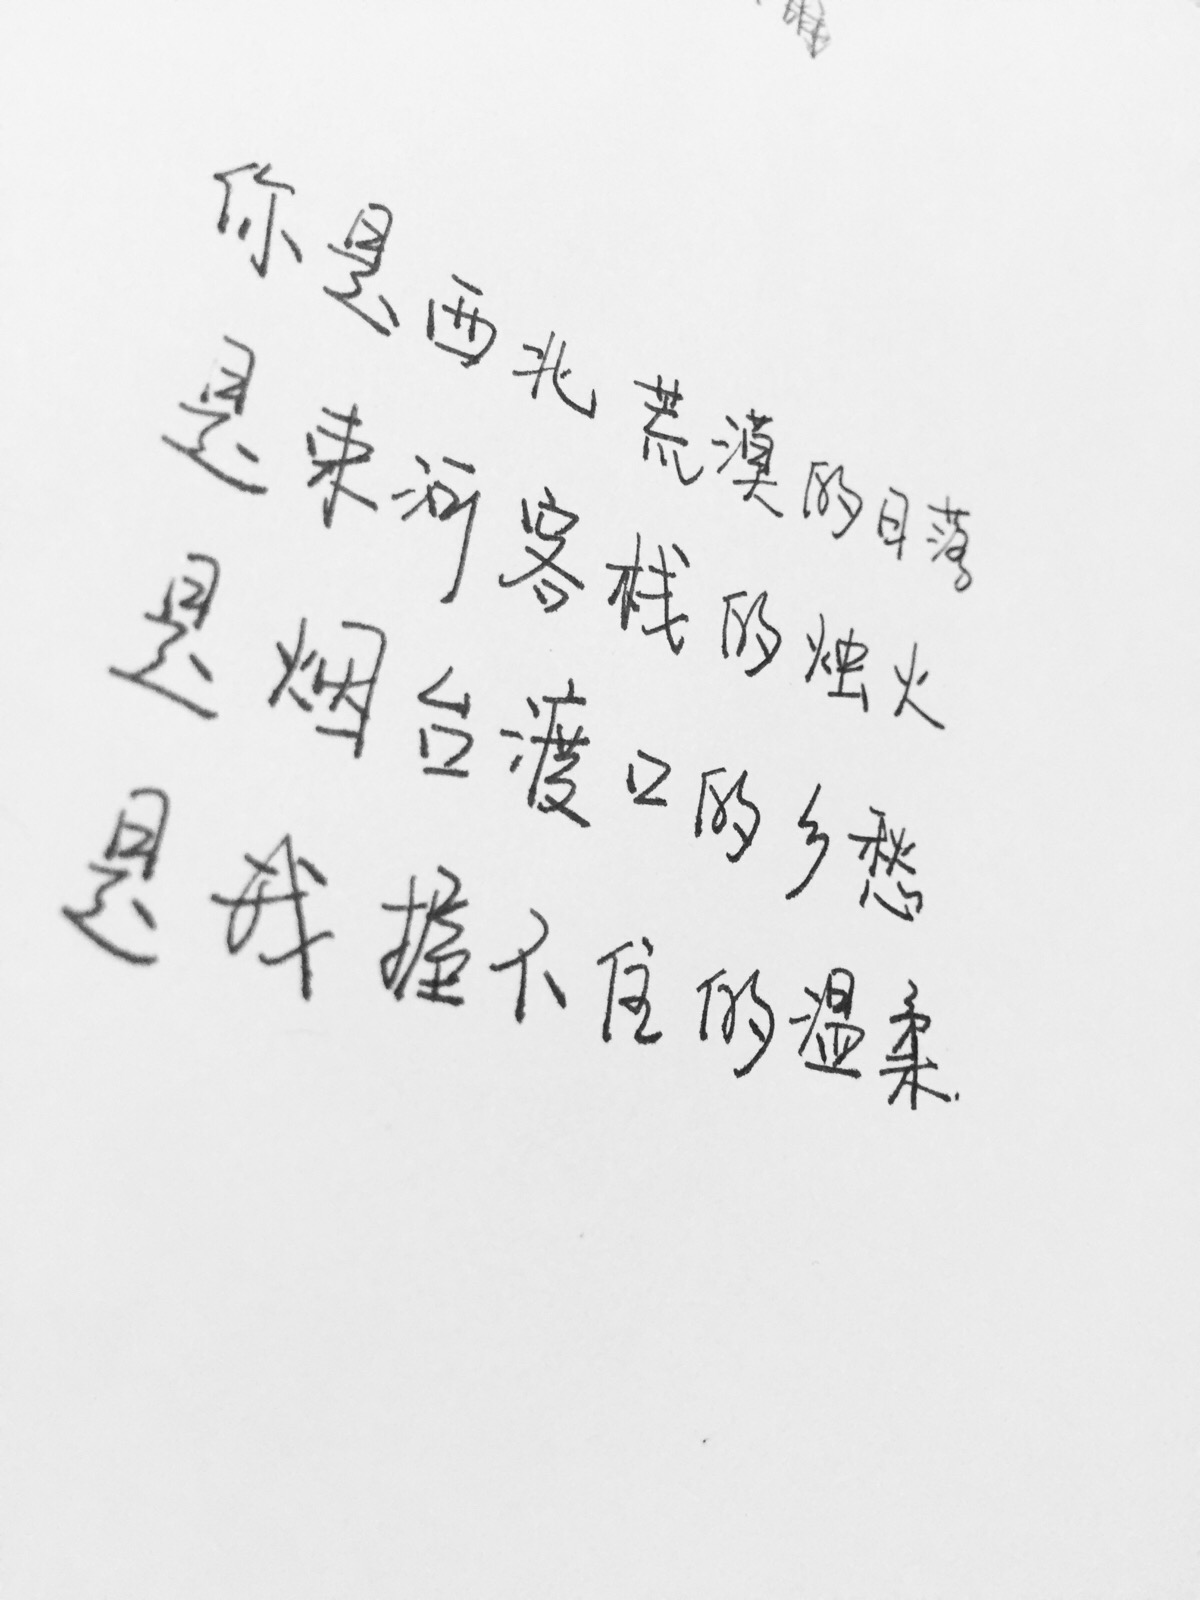 你是西北荒漠的日落
是束河客栈的烛火
是烟台渡口的乡愁
是我握不住的温柔.